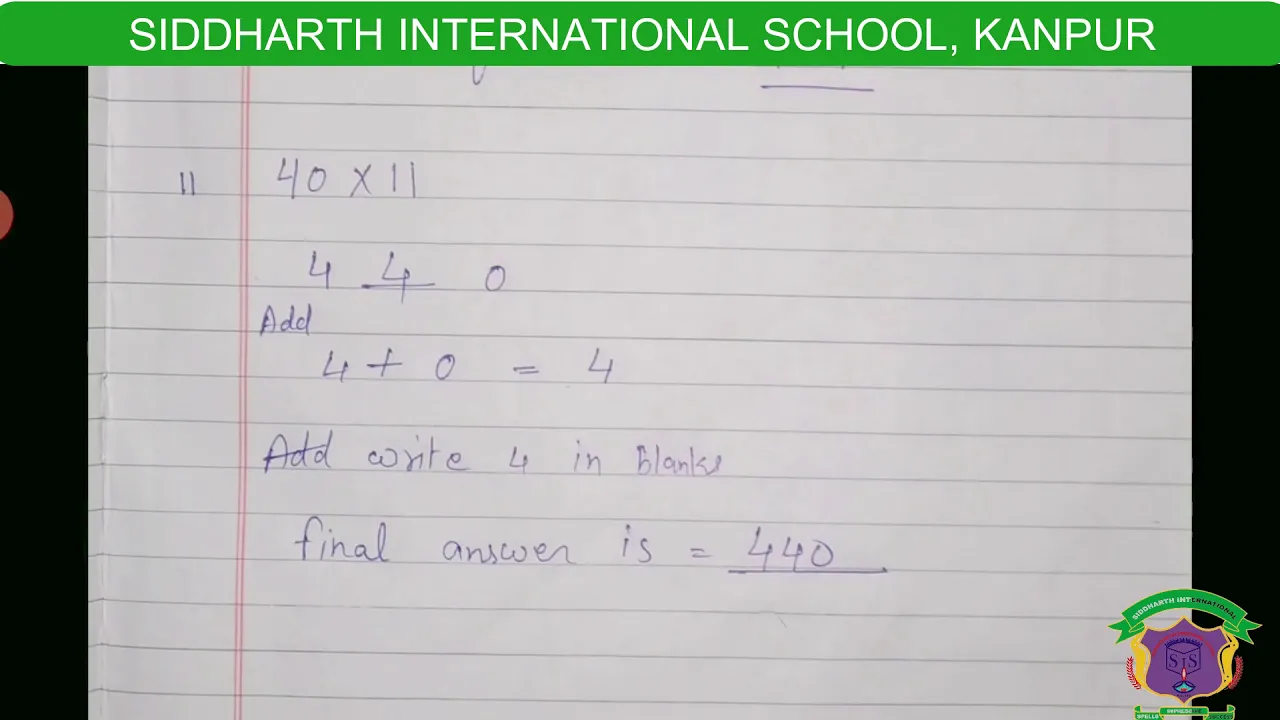 SIDDHARTH INTERNATIONAL SCHOOL, KANPUR
11 40 x 11
4 4 0
Add
4 + 0 = 4
Add write 4 in Blanks
final answer is = 440
SIDDHARTH INTERNATIONAL
SIS